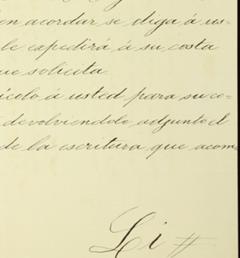 en acordar se diga á us-
le expedirá á su costa
ue solicita.
ícolo á usted para su co-
devolviendole adjunto el
de la escritura que acom
Li